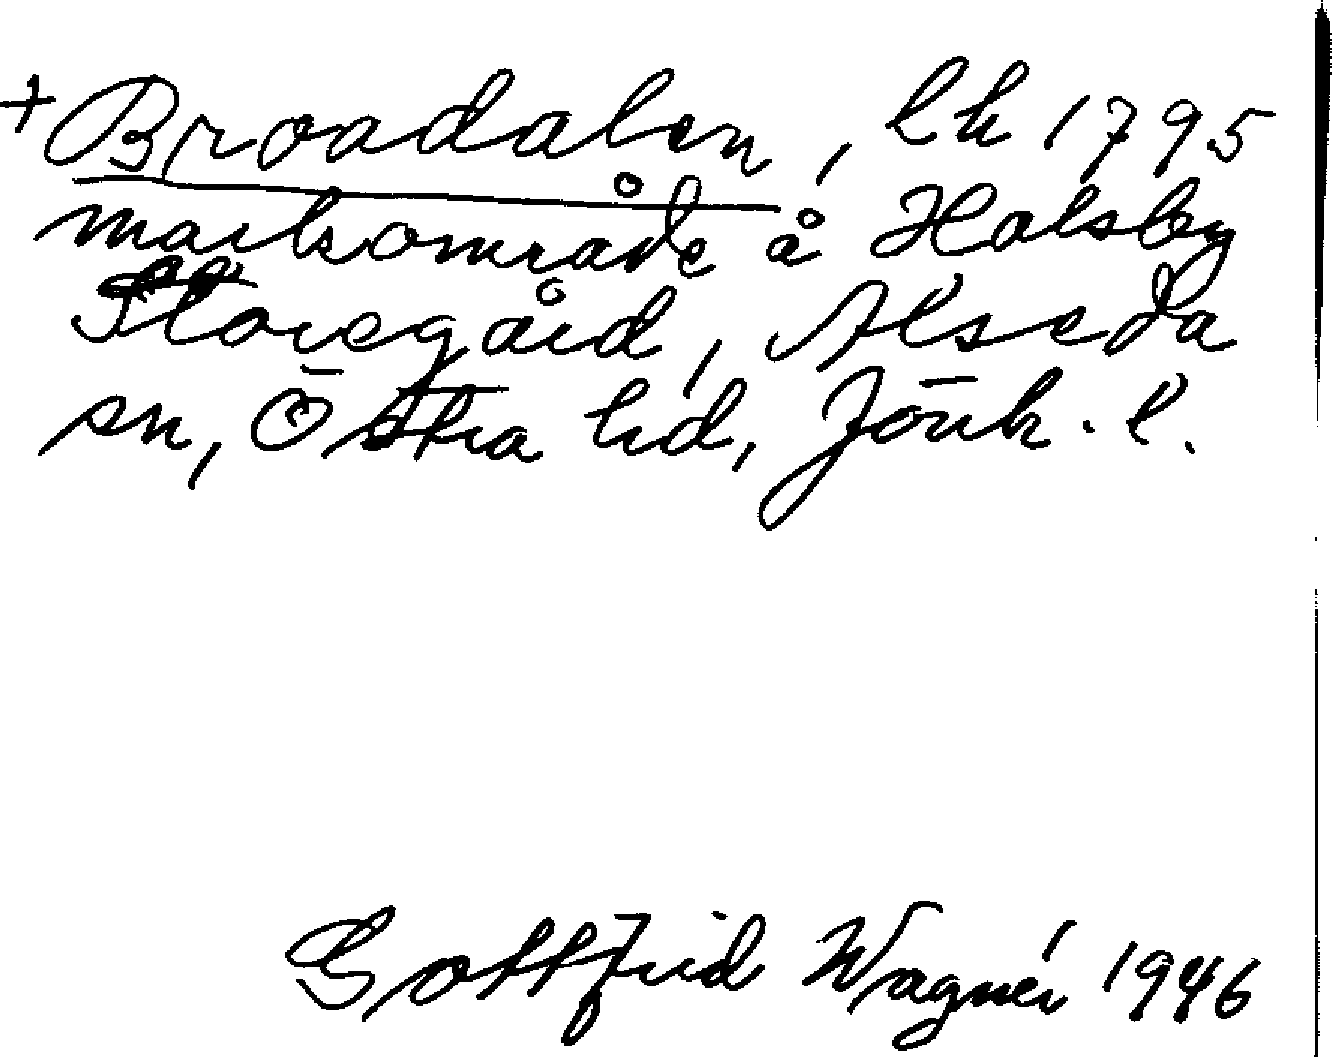 + Broadalen, lh 1795
markområde å Holsby
Storegård, Alseda
sn, Östra hd, Jönk. l.
Gottfrid Wagnér 1946